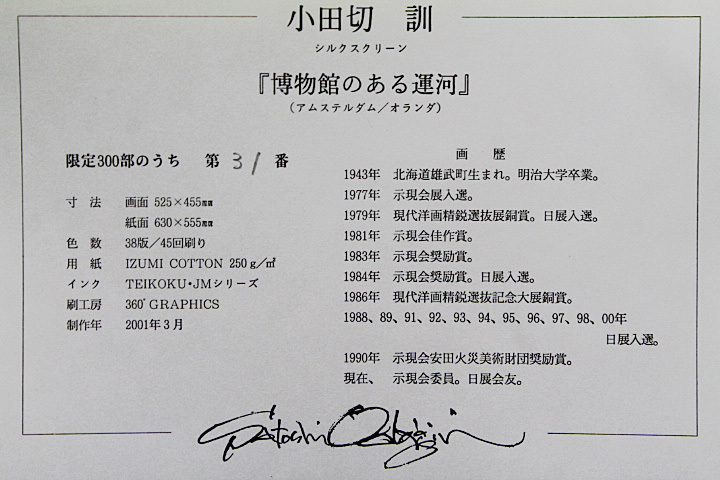 小田切 訓
シルクスクリーン
『博物館のある運河』
（アムステルダム／オランダ）
限定300部のうち 第 31 番
寸 法 画面 525×455㎜
紙面 630×555㎜
色 数 38版／45回刷り
用 紙 IZUMI COTTON 250ｇ/㎡
インク TEIKOKU・JMシリーズ
刷工房 360°GRAPHICS
制作年 2001年３月
画 歴
1943年 北海道雄武町生まれ。明治大学卒業。
1977年 示現会展入選。
1979年 現代洋画精鋭選抜展銅賞。日展入選。
1981年 示現会佳作賞。
1983年 示現会奨励賞。
1984年 示現会奨励賞。日展入選。
1986年 現代洋画精鋭選抜記念大展銅賞。
1988、89、91、92、93、94、95、96、97、98、00年
日展入選。
1990年 示現会安田火災美術財団奨励賞。
現在、 示現会委員。日展会友。
Satoshi Otagiri